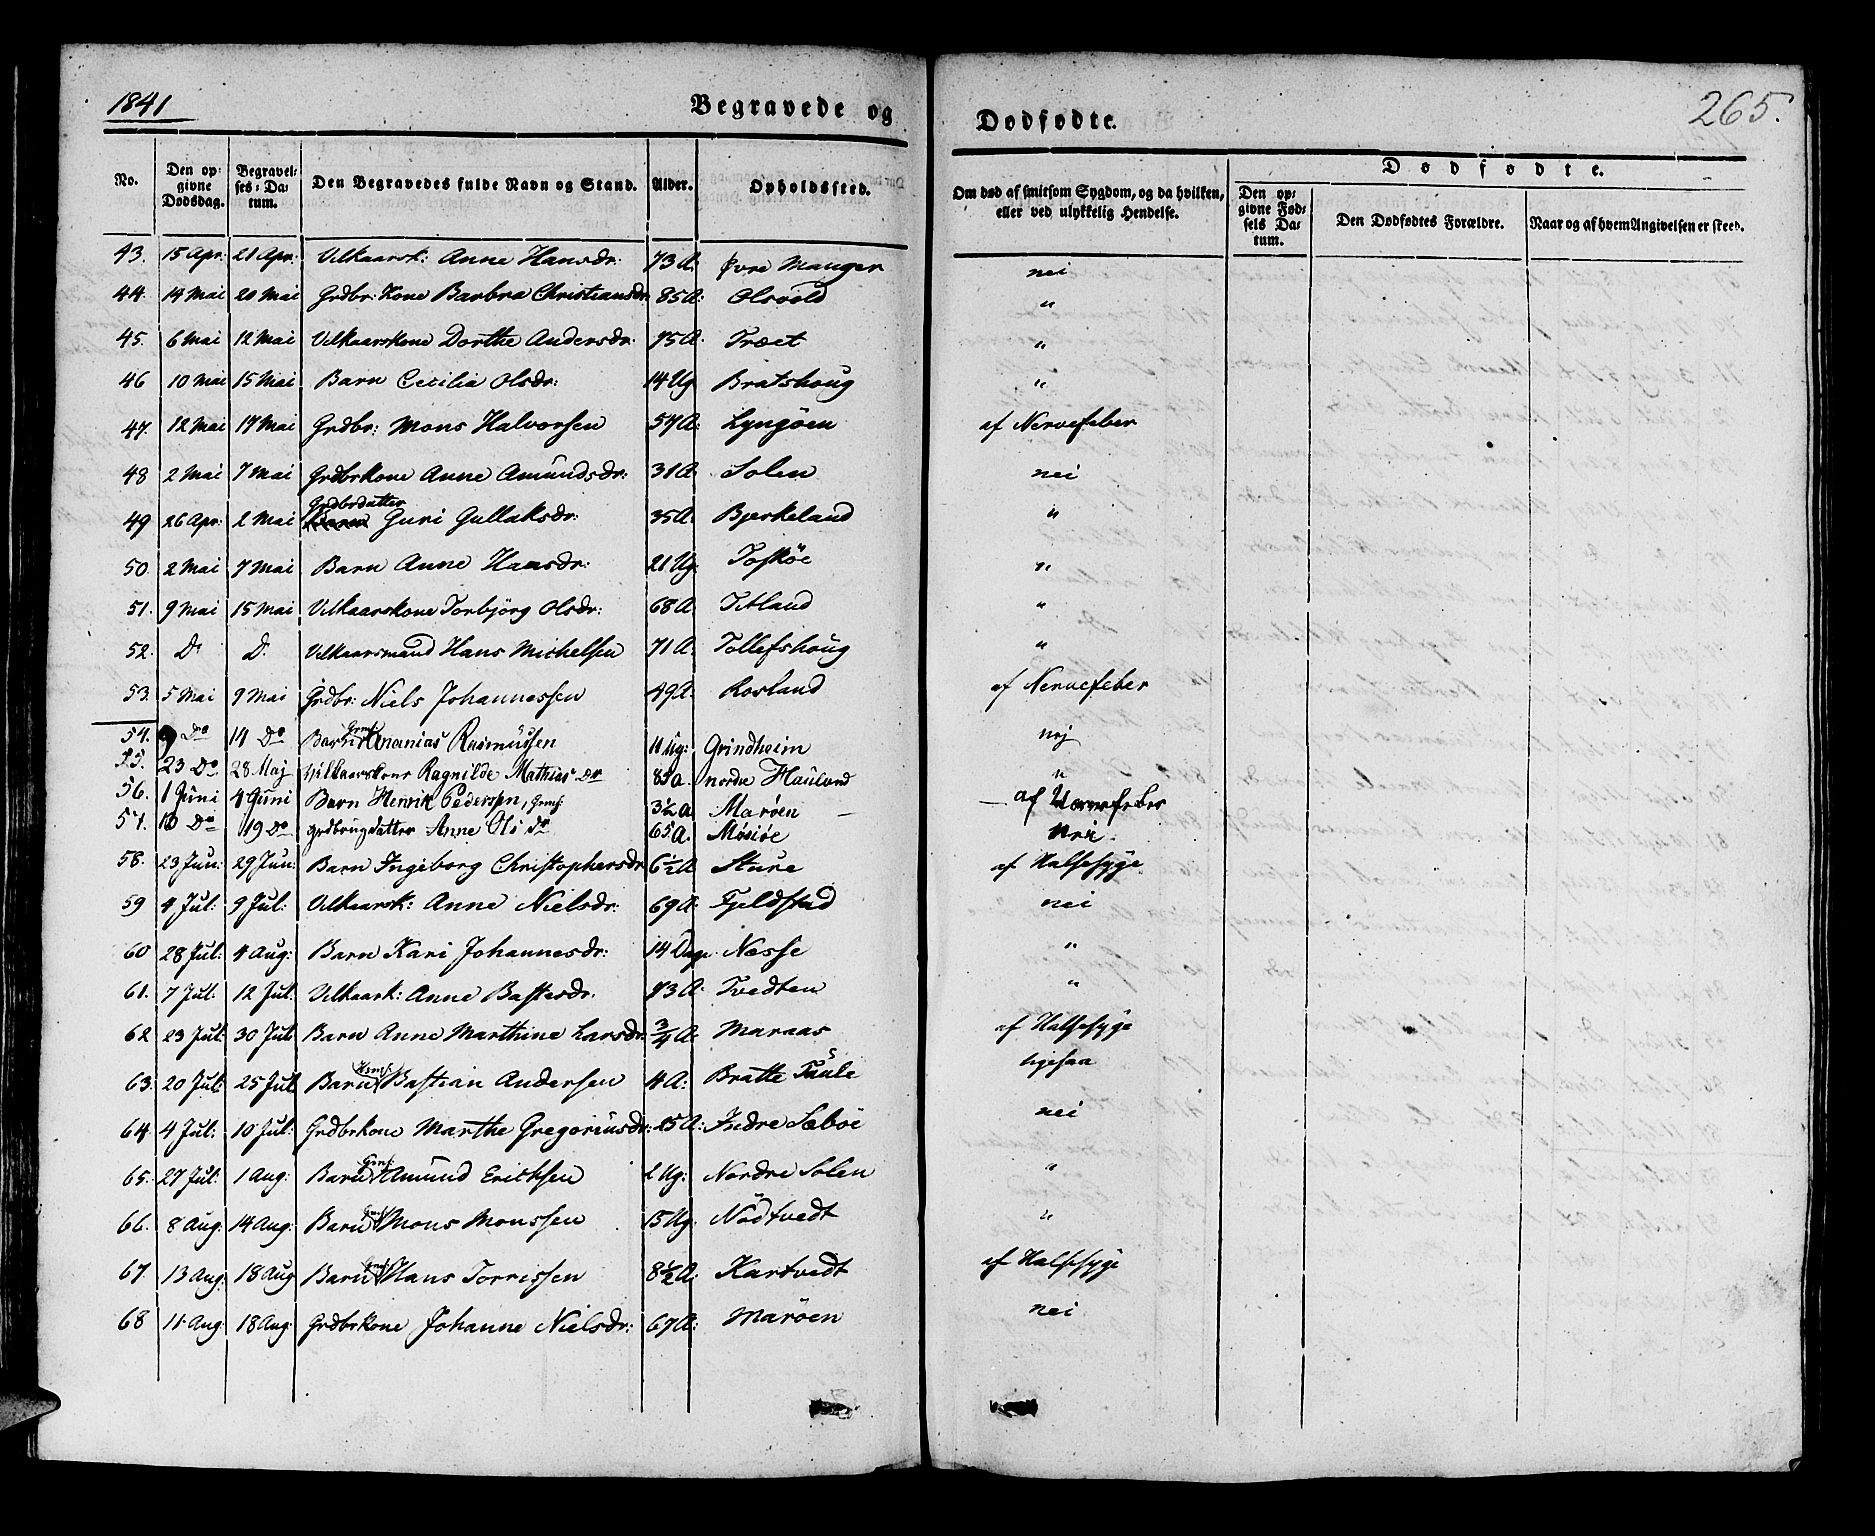 1841 Begravede og Dødfødte. 265.
Dødfødte.
No. Den opgivne Dødsdag. Begravelses-Datum. Den Begravedes fulde Navn og Stand. Alder. Opholdssted. Om død af smitsom Sygdom, og da hvilken, eller ved ulykkelig Hendelse. Den opgivne Fødsels Datum. Den Dødfødtes Forældre. Naar og af hvem Angivelsen er skeed.
43. 15 Apr. 21 Apr. Vilkaarsk: Anne Hansdr. 73 A. Øvre Manger nei
44. 14 Mai 20 Mai Grdbr: Kone Barbra Christiansdr 85 A: Olsvold "
45. 6 Mai 12 Mai Vilkaarskone Dorthe Andersdr. 75 A. Træet "
46 10 Mai 15 Mai Barn Cecilia Olsdr: 14 Ug Bratshoug "
47. 12 Mai 17 Mai Grdbr: Mons Halvorsen 57 A: Lyngöen af Nervefeber
48 2 Mai 7 Mai Grdbrkone Anne Amundsdr: 31 A. Solen nei
49 26 Apr: 2 Mai Grdbrdatter Guri Gullaksdr: 35 A: Bjerkeland "
50. 2 Mai 7 Mai Barn Anne Hansdr: 21 Ug. Tosköe "
51. 9 Mai 15 Mai Vilkaarskone Torbjörg Olsdr: 68 A. Titland "
52. D. D. Vilkaarsmand Hans Michelsen 71 A. Tollefshoug "
53. 5 Mai 9 Mai Grdbr. Niels Johannessen 49 A. Rosland af Nervefeber
54. 9 Do 14 Do Barn Ananias Rasmussen 11 Ug: Grindheim nej
55. 23 Do 28 Maj Vilkaarskone Ragnilde Mathias Dr 85 a. nordre Hauland "
56. 1 Juni 4 Juni Barn Henrik Pedersen, 3½ a Marøen – af Nervefeber
57. 10 Do 19 Do grdbrugdatter Anne Ols dr 65 A. Møsiøe Nei.
58. 23 Jun: 29 Jun: Barn Ingeborg Christophersdr 6½ A Sture af Halssyge
59 4 Jul: 9 Jul: Vilkaarsk: Anne Nielsdr: 69 A: Fjeldstad nei
60 28 Jul: 4 Aug: Barn Kari Johannesdr: 14 Dage Næsse "
61. 7 Jul. 12 Jul. Vilkaark: Anne Bastesdr. 83 A. Tvedten "
62 23 Jul. 30 Jul. Barn Anne Marthine Larsdr ¾ A. Maraas af Halssyge
63. 20 Jul. 25 Jul Barn Bastian Andersen 4 A: Bratte Taule ligesaa
64. 4 Jul: 10 Jul: Grdbrkone Marthe Gregoriusdr: 25 A: Indre Sæböe nei
65. 27 Jul. 1 Aug: Barn Amund Ericksen 2 Ug: Nordre Solen "
66. 8 Aug. 14 Aug. Barn Mons Monssen 15 Ug. Nödtvedt "
67. 13 Aug: 18 Aug Barn Hans Torrissen 8½ A. Kartvedt af Halssyge
68 11. Aug 18 Aug. Grdbrkone Johanne Nielsdr: 67 A: Maröen nei